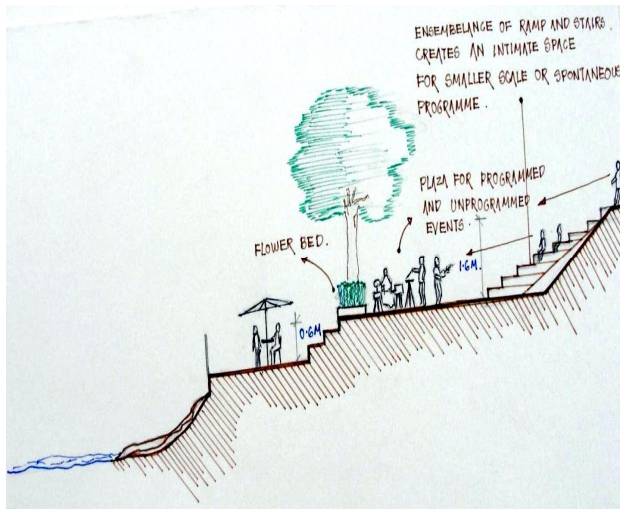 ENSEMBELANCE OF RAMP AND STAIRS.
CREATES AN INTIMATE SPACE
FOR SMALLER SCALE OR SPONTANEOUS
PROGRAMME.
PLAZA FOR PROGRAMMED
AND UNPROGRAMMED
EVENTS.
FLOWER BED.
1.6M.
0.6M